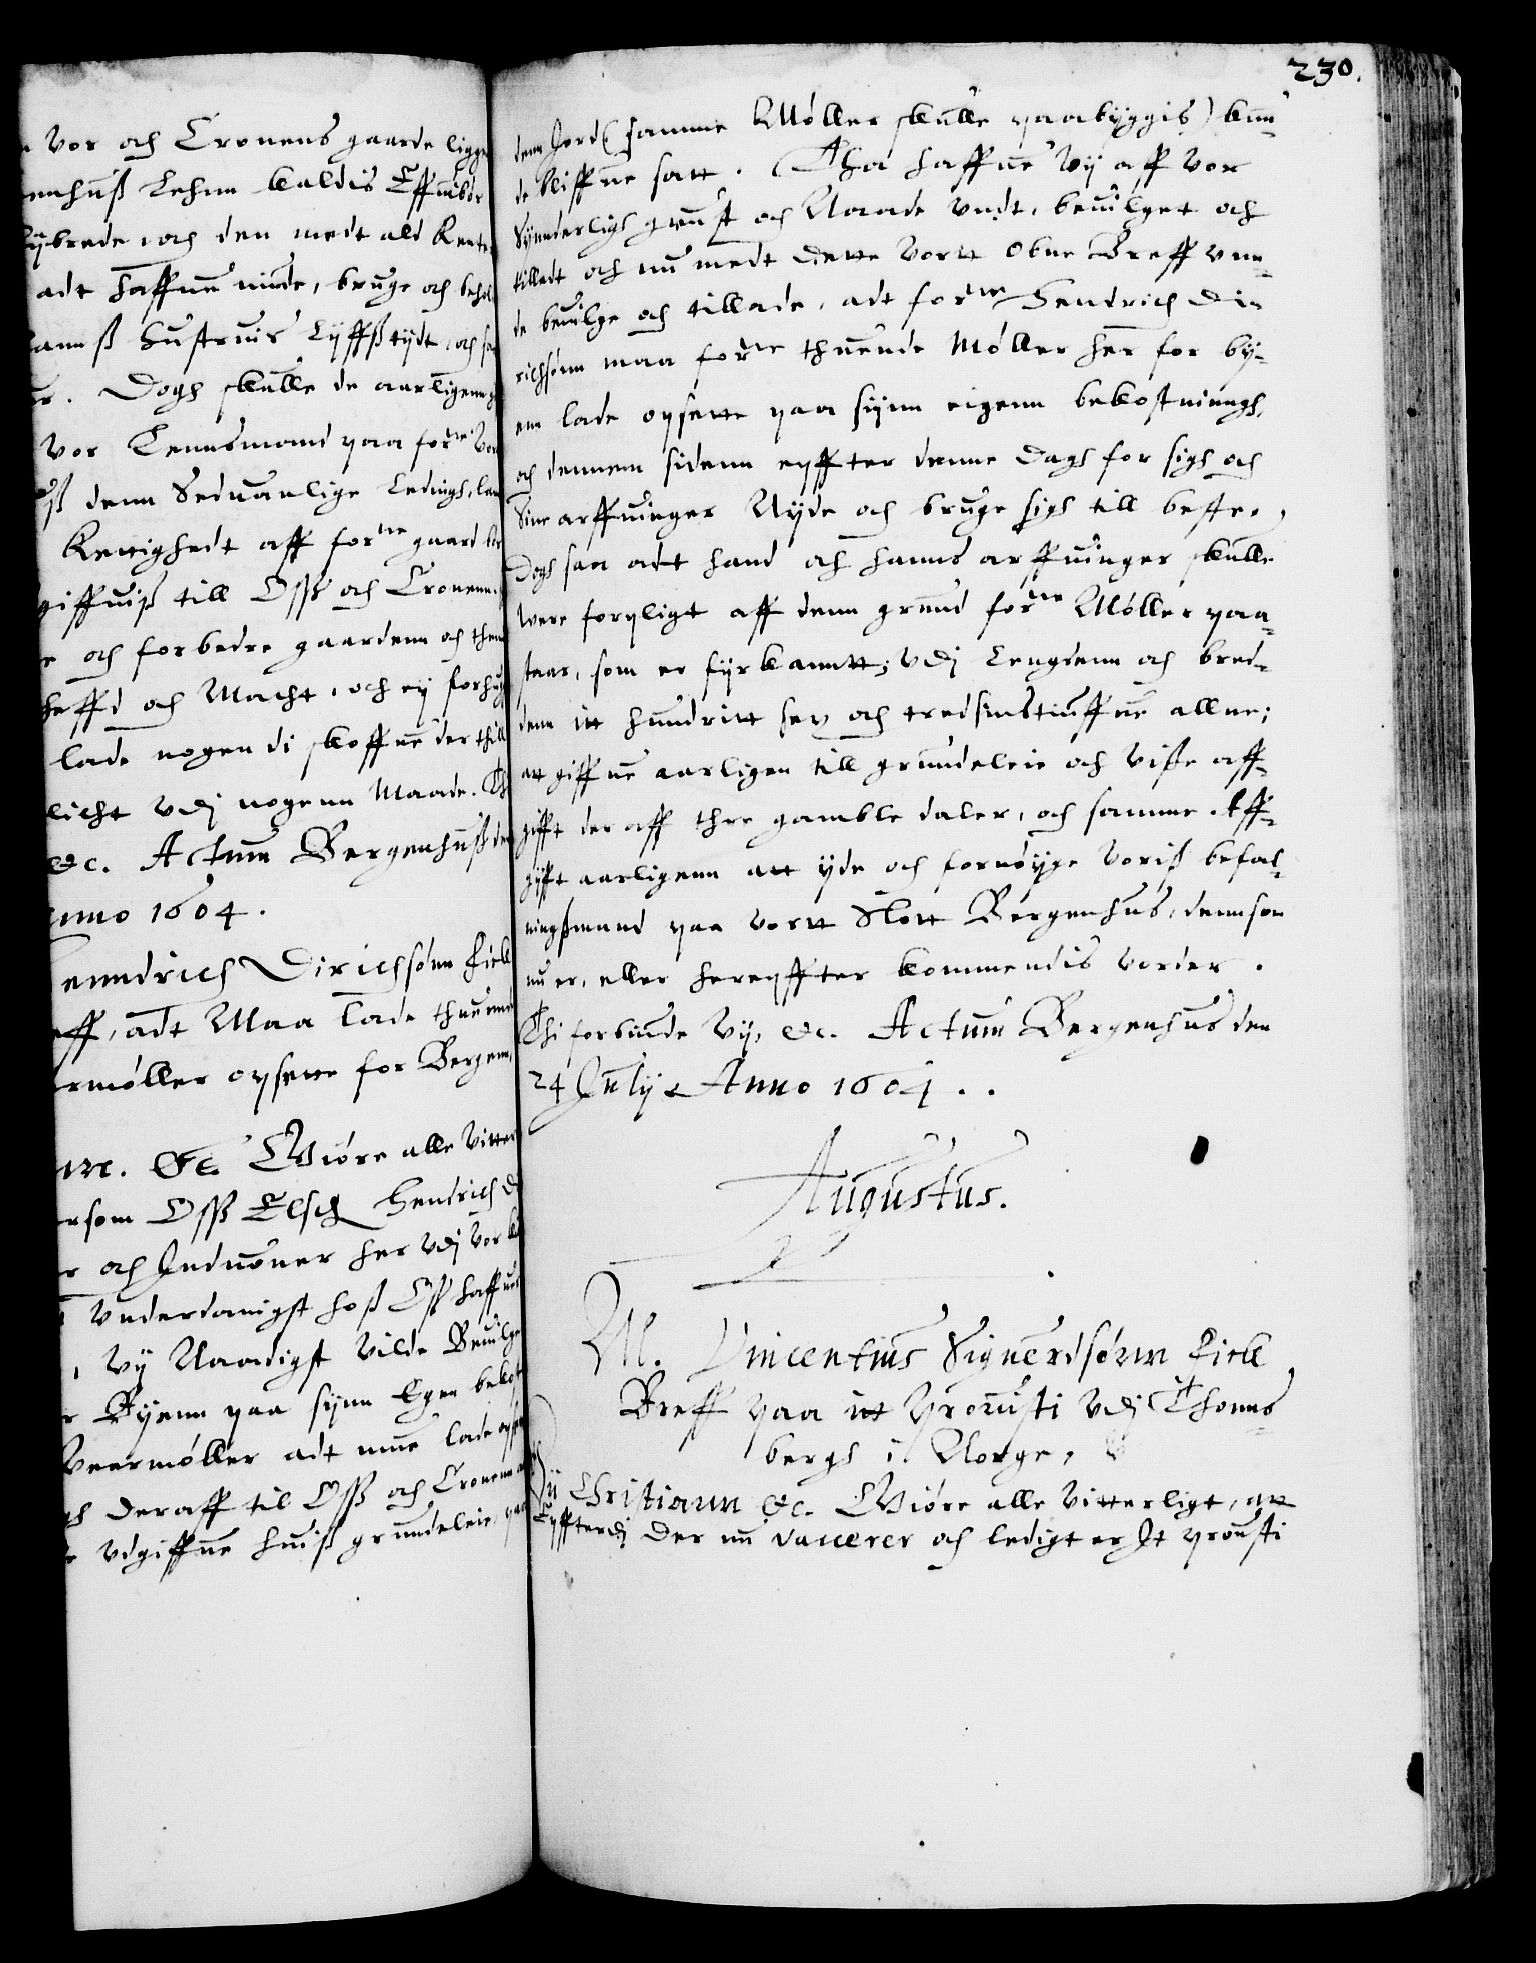 Vor och Cronens gaarde ligge
enhuß Lehnn kaldis Effuibør
ybrede, och den medt ald Rente
adt haffue niude, bruge och behol
anß hustruis Lyffßtydt, och sa
Dogh skulle de aarligenn
Vor Lennsmand paa forne Vor
denn Seduanlige Ledings, lan
Rettighedt aff forne gaard bør
giffuiß till Oß och Cronenn
och forbedre gaardenn och thenn
heffd och Macht, och ey forhug
lade nogen di skoffue der thill
licht vdj nogenn Maade. Th
&c. Actum Bergenhuß den
nno 1604.
enndrich Dirichsønn Fick
eff, adt Maa lade thuenn
rmøller opsette for Bergenn,
&c. Giøre alle Vitter
rsom Oß Elsch Hendrich D
och Induoner her vdj Vor
Vnderdanigst hoß Oß haffue
Vy Naadigst Vilde Beuilge
Byenn paa synn Egen bekost
Veermøller adt mue lade opse
deraff til Oß och Cronenn
vdgiffue huiß grundeleie, paa
230.
denn Jord (samme Møller skulle paabyggis) kun¬
de bliffue satt. Tha haffue Vy aff Vor
Synderligh gunst och Naade Vndt, beuilget och
tilladt och nu medt dette Vortt Obne Breff vnn¬
de beuilge och tillade, adt forne Hendrich Di¬
richsønn maa forne thuende Møller her for by¬
enn lade opsette paa synn eigenn bekostningh,
och dennem sidenn epffter denne Dagh for sigh och
Sine arffuinger Nyde och bruge sigh till beste,
Dogh saa adt hand och hanns arffuinger skulle
were forpligt aff denn grund forne Møller paa¬
staar, som er fyrkanntt; vdj Lengdenn och bred¬
denn itt hundritt sex och tredsindstiuffue allne;
att giffue aarligen till grundeleie och Viße aff¬
gifft der aff thre gamble daler, och samme Aff¬
gifft aarligenn att yde och fornøyge Voriß befal¬
ningßmand paa Vortt Slott Bergenhus, denn som
nu er, eller herepffter kommendis Vorder.
Thi forbiude Vy, &c. Actum Bergenhus den
24 July Anno 1604..
Augustus.
M. Vincentius Siguerdsønn Fick
Breff paa itt Prouisti vdj Thonns¬
bergh i Norge,
Vy Christiann &c. Giøre alle Vitterligt, att
Epffterdj der nu vacerer och ledigt er It prousti